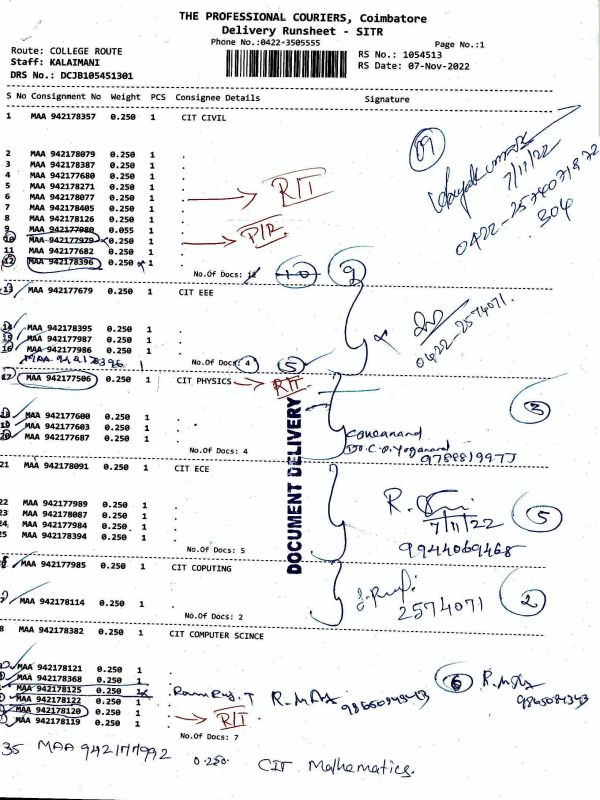 THE PROFESSIONAL COURIERS, Coimbatore
Delivery Runsheet - SITR
Phone No.:0422-3505555
Page No.:1
Route: COLLEGE ROUTE
RS No.: 1054513
Staff: KALAIMANI
RS Date: 07-Nov-2022
DRS No.: DCJB105451301
S No Consignment No Weight PCS Consignee Details Signature
1 MAA 942178357 0.250 1 CIT CIVIL
09
7/11/22
0422-2574071972
304
2 MAA 942178079 0.250 1 .
3 MAA 942178387 0.250 1 .
4 MAA 942177680 0.250 1 .
5 MAA 942178271 0.250 1 .
6 MAA 942178077 0.250 1 . RTI
7 MAA 942178405 0.250 1 .
8 MAA 942178126 0.250 1 .
9 MAA 942177980 0.055 1 . P/R
10 MAA 942177979 0.250 1 .
11 MAA 942177682 0.250 1 .
12 MAA 942178396 0.250 1 .
No.Of Docs: 12 10 9
13 MAA 942177679 0.250 1 CIT EEE
0422-2574071.
14 MAA 942178395 0.250 1 .
15 MAA 942177987 0.250 1 .
16 MAA 942177986 0.250 1 .
MAA 942178396 1
No.Of Docs: 4 5
17 MAA 942177506 0.250 1 CIT PHYSICS RTI
3
18 MAA 942177600 0.250 1 .
19 MAA 942177603 0.250 1 .
20 MAA 942177687 0.250 1 .
No.Of Docs: 4
DOCUMENT DELIVERY
21 MAA 942178091 0.250 1 CIT ECE
7/11/22
9944069468
5
22 MAA 942177989 0.250 1 .
23 MAA 942178087 0.250 1 .
24 MAA 942177984 0.250 1 .
25 MAA 942178394 0.250 1 .
No.Of Docs: 5
MAA 942177985 0.250 1 CIT COPUTING
2574071
2
MAA 942178114 0.250 1 .
No.Of Docs: 2
8 MAA 942178382 0.250 1 CIT COMPUTER SCINCE
MAA 942178121 0.250 1 .
MAA 942178368 0.250 1 .
MAA 942178125 0.250 1
MAA 942178122 0.250 1
MAA 942178120 0.250 1 .
MAA 942178119 0.250 1 . RTI
6
No.Of Docs: 7
35 MAA 942177992 0.250 CIT Mathematics.